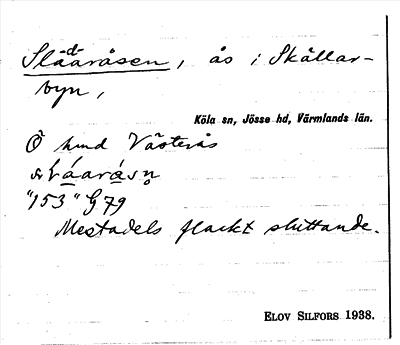 Slåaråsen, ås i Skållar-
byn,
Köla sn, Jösse hd, Värmlands län.
Ö hmd Västerås
"153" G 79
Mestadels flackt sluttande.
ELOV SILFORS 1938.